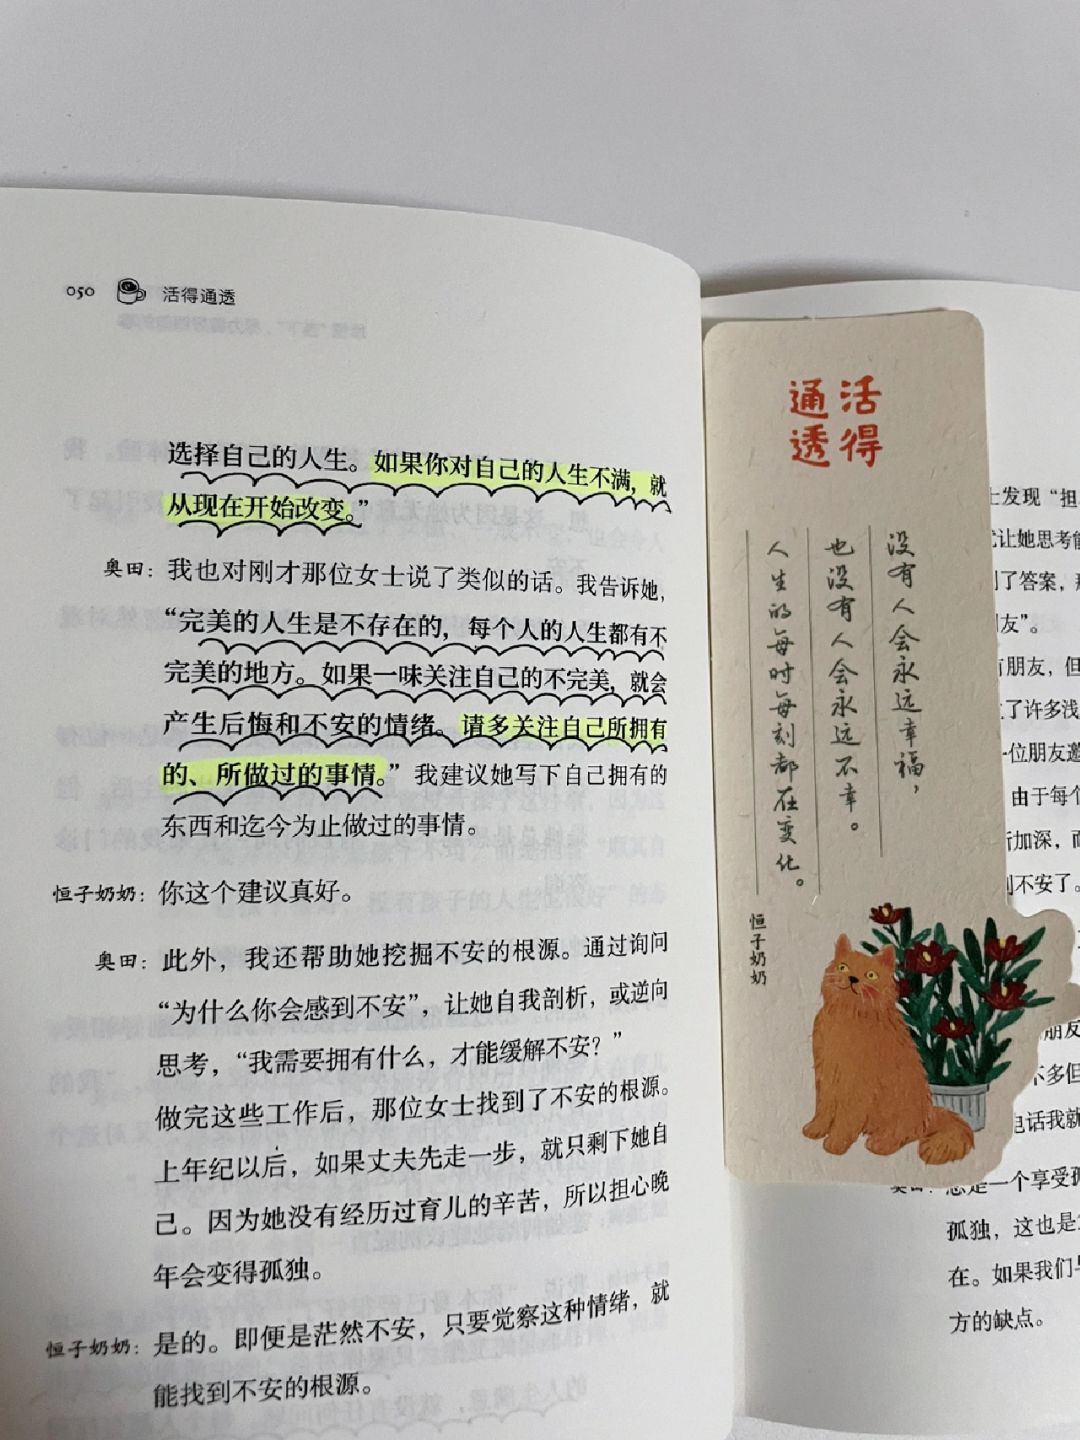 050 活得通透
选择自己的人生。如果你对自己的人生不满，就
从现在开始改变。”
奥田：我也对刚才那位女士说了类似的话。我告诉她，
“完美的人生是不存在的，每个人的人生都有不
完美的地方。如果一味关注自己的不完美，就会
产生后悔和不安的情绪。请多关注自己所拥有
的、所做过的事情。”我建议她写下自己拥有的
东西和迄今为止做过的事情。
恒子奶奶：你这个建议真好。
奥田：此外，我还帮助她挖掘不安的根源。通过询问
“为什么你会感到不安”，让她自我剖析，或逆向
思考，“我需要拥有什么，才能缓解不安？”
做完这些工作后，那位女士找到了不安的根源。
上年纪以后，如果丈夫先走一步，就只剩下她自
己。因为她没有经历过育儿的辛苦，所以担心晚
年会变得孤独。
恒子奶奶：是的。即便是茫然不安，只要觉察这种情绪，就
能找到不安的根源。
活得
通透
没有人会永远幸福，
也没有人会永远不幸。
人生的每时每刻都在变化。
恒子奶奶
发现“担
让她思考能
了答案，那
友”。
有朋友，但
了许多浅
一位朋友邀
由于每个
加深，而
不安了。
朋友
不多但
电话我就
奥田：您是一个享受孤
孤独，这也是
在。如果我们
方的缺点。